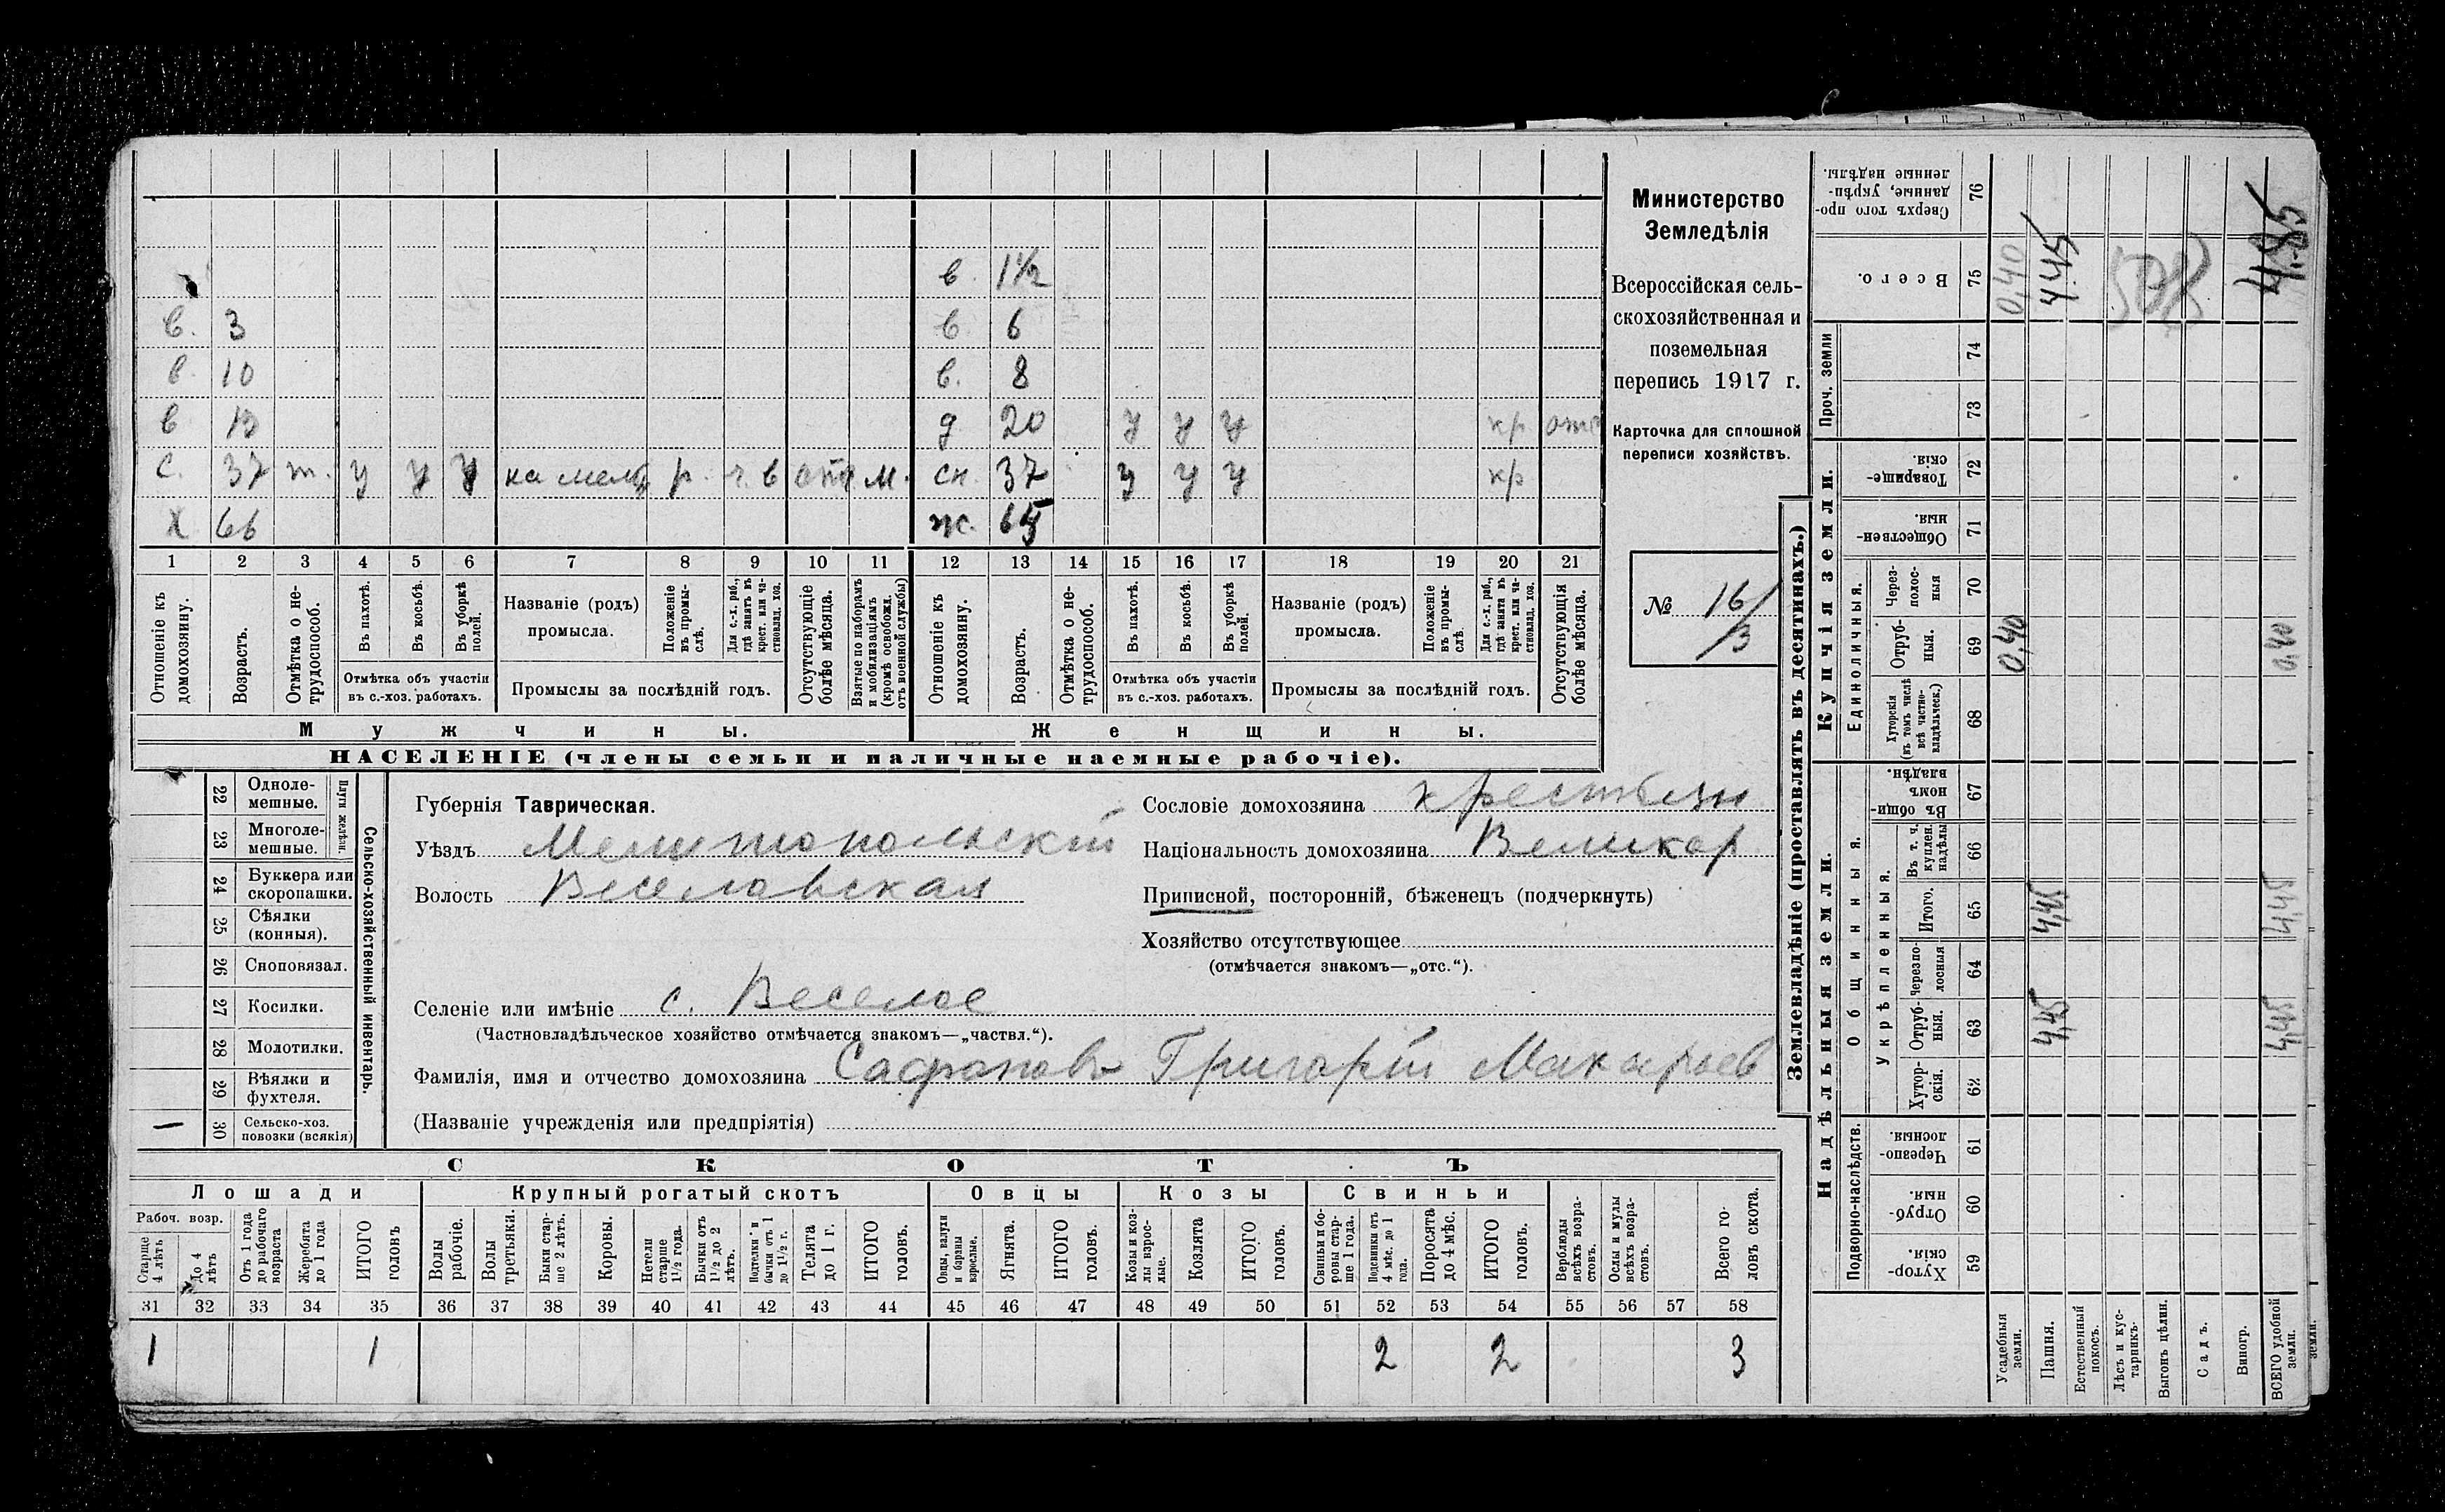 в. 1½
в. 3 в. 6
в. 10 в. 8
в 13 д 20 у у у кр отс
с. 37 т. у у у р. ч. в отс м. сн. 37 у у у кр
х 66 ж. 65
1 2 3 4 5 6 7 8 9 10 11 12 13 14 15 16 17 18 19 20 21
Отношеніе къ домохозяину.
Возрастъ.
Отмѣтка о не-трудоспособ.
Въ пахотѣ.
Въ косьбѣ.
Въ уборкѣ полей.
Отмѣтка объ участіи
въ с.-хоз. работахъ.
Названіе (родъ)
промысла.
Положеніе въ промы-слѣ.
Для с.-х. раб., гдѣ занятъ въ крест. или ча-стновлад. хоз.
Промыслы за послѣдній годъ.
Отсутствующіе болѣе мѣсяца.
Взятые по наборамъ и мобилизаціямъ (кромѣ освобожд. отъ военной службы)
Отношеніе къ домохозяину.
Возрастъ.
Отмѣтка о не-трудоспособ.
Въ пахотѣ.
Въ косьбѣ.
Въ уборкѣ полей.
Отмѣтка объ участіи
въ с.-хоз. работахъ.
Названіе (родъ)
промысла.
Положеніе въ промы-слѣ.
Для с.-х. раб., гдѣ занята въ крест. или ча-стновлад. хоз.
Промыслы за послѣдній годъ.
Отсутствующія болѣе мѣсяца.
Мужчины. Женщины.
НАСЕЛЕНІЕ (члены семьи и наличные наемные рабочіе).
Министерство
Земледѣлія
Всероссійская сель-
скохозяйственная и
поземельная
перепись 1917 г.
Карточка для сплошной
переписи хозяйствъ.
№ 16/3
22 Одноле-мешные.
23 Многоле-мешные.
Плуги желѣзн.
24 Буккера или скоропашки.
25 Сѣялки (конныя).
26 Сноповязал.
27 Косилки.
28 Молотилки.
29 Вѣялки и фухтеля.
— 30 Сельско-хоз. повозки (всякія)
Сельско-хозяйственный инвентарь.
Губернія Таврическая.
Уѣздъ Мелитопольскій
Волость Веселовская
Сословіе домохозяина крестьян
Національность домохозяина Великор
Приписной, посторонній, бѣженецъ (подчеркнуть)
Хозяйство отсутствующее
(отмѣчается знакомъ—„отс.“).
Селеніе или имѣніе с. Веселое
(Частновладѣльческое хозяйство отмѣчается знакомъ—„частвл.“).
Фамилія, имя и отчество домохозяина Сафоновъ Григорій Макарьев
(Названіе учрежденія или предпріятія)
СКОТЪ
Лошади Крупный рогатый скотъ Овцы Козы Свиньи
Рабоч. возр.
Старше 4 лѣтъ
До 4 лѣтъ
Отъ 1 года до рабочаго возраста
Жеребята до 1 года
ИТОГО головъ
Волы рабочіе.
Волы третьяки.
Быки стар-ше 2 лѣтъ.
Коровы.
Нетели старше 1½ года.
Бычки отъ 1½ до 2 лѣтъ.
Подтелки и бычки отъ 1 до 1½ г.
Телята до 1 г.
ИТОГО головъ.
Овцы, валухи и бараны взрослые.
Ягнята.
ИТОГО головъ.
Козы и коз-лы взрос-лые.
Козлята
ИТОГО головъ.
Свиньи и бо-ровы стар-ше 1 года.
Подсвинки отъ 4 мѣс. до 1 года.
Поросята до 4 мѣс.
ИТОГО головъ.
Верблюды всѣхъ возра-стовъ.
Ослы и мулы всѣхъ возра-стовъ.
Всего го-ловъ скота.
31 32 33 34 35 36 37 38 39 40 41 42 43 44 45 46 47 48 49 50 51 52 53 54 55 56 57 58
1 1 2 2 3
Землевладѣніе (проставлять въ десятинахъ.)
Надѣльныя земли. Купчія земли. Проч. земли
Подворно-наслѣдств. Общинныя. Укрѣпленныя. Единоличныя.
59 Хутор-скія.
60 Отруб-ныя.
61 Черезпо-лосныя.
62 Хутор-скія.
63 Отруб-ныя. 4,45 4,45
64 Черезпо-лосныя
65 Итого. 4,45 4,45
66 Въ т. ч. куплен. надѣлы
67 Въ общи-нномъ владѣн.
68 Хуторскія (въ томъ числѣ всѣ частно-владѣльческ.)
69 Отруб-ныя. 0,40 0,40
70 Через-полос-ныя
71 Обществен-ныя.
72 Товарище-скія.
73
74
75 Всего. 0,40 4.45 508 4.85
76 Сверхъ того про-данные, укрѣп-ленные надѣлы.
Усадебныя земли.
Пашня.
Естественный покосъ.
Лѣсъ и кус-тарникъ.
Выгонъ цѣлин.
Садъ.
Виногр.
ВСЕГО удобной земли.
земли.